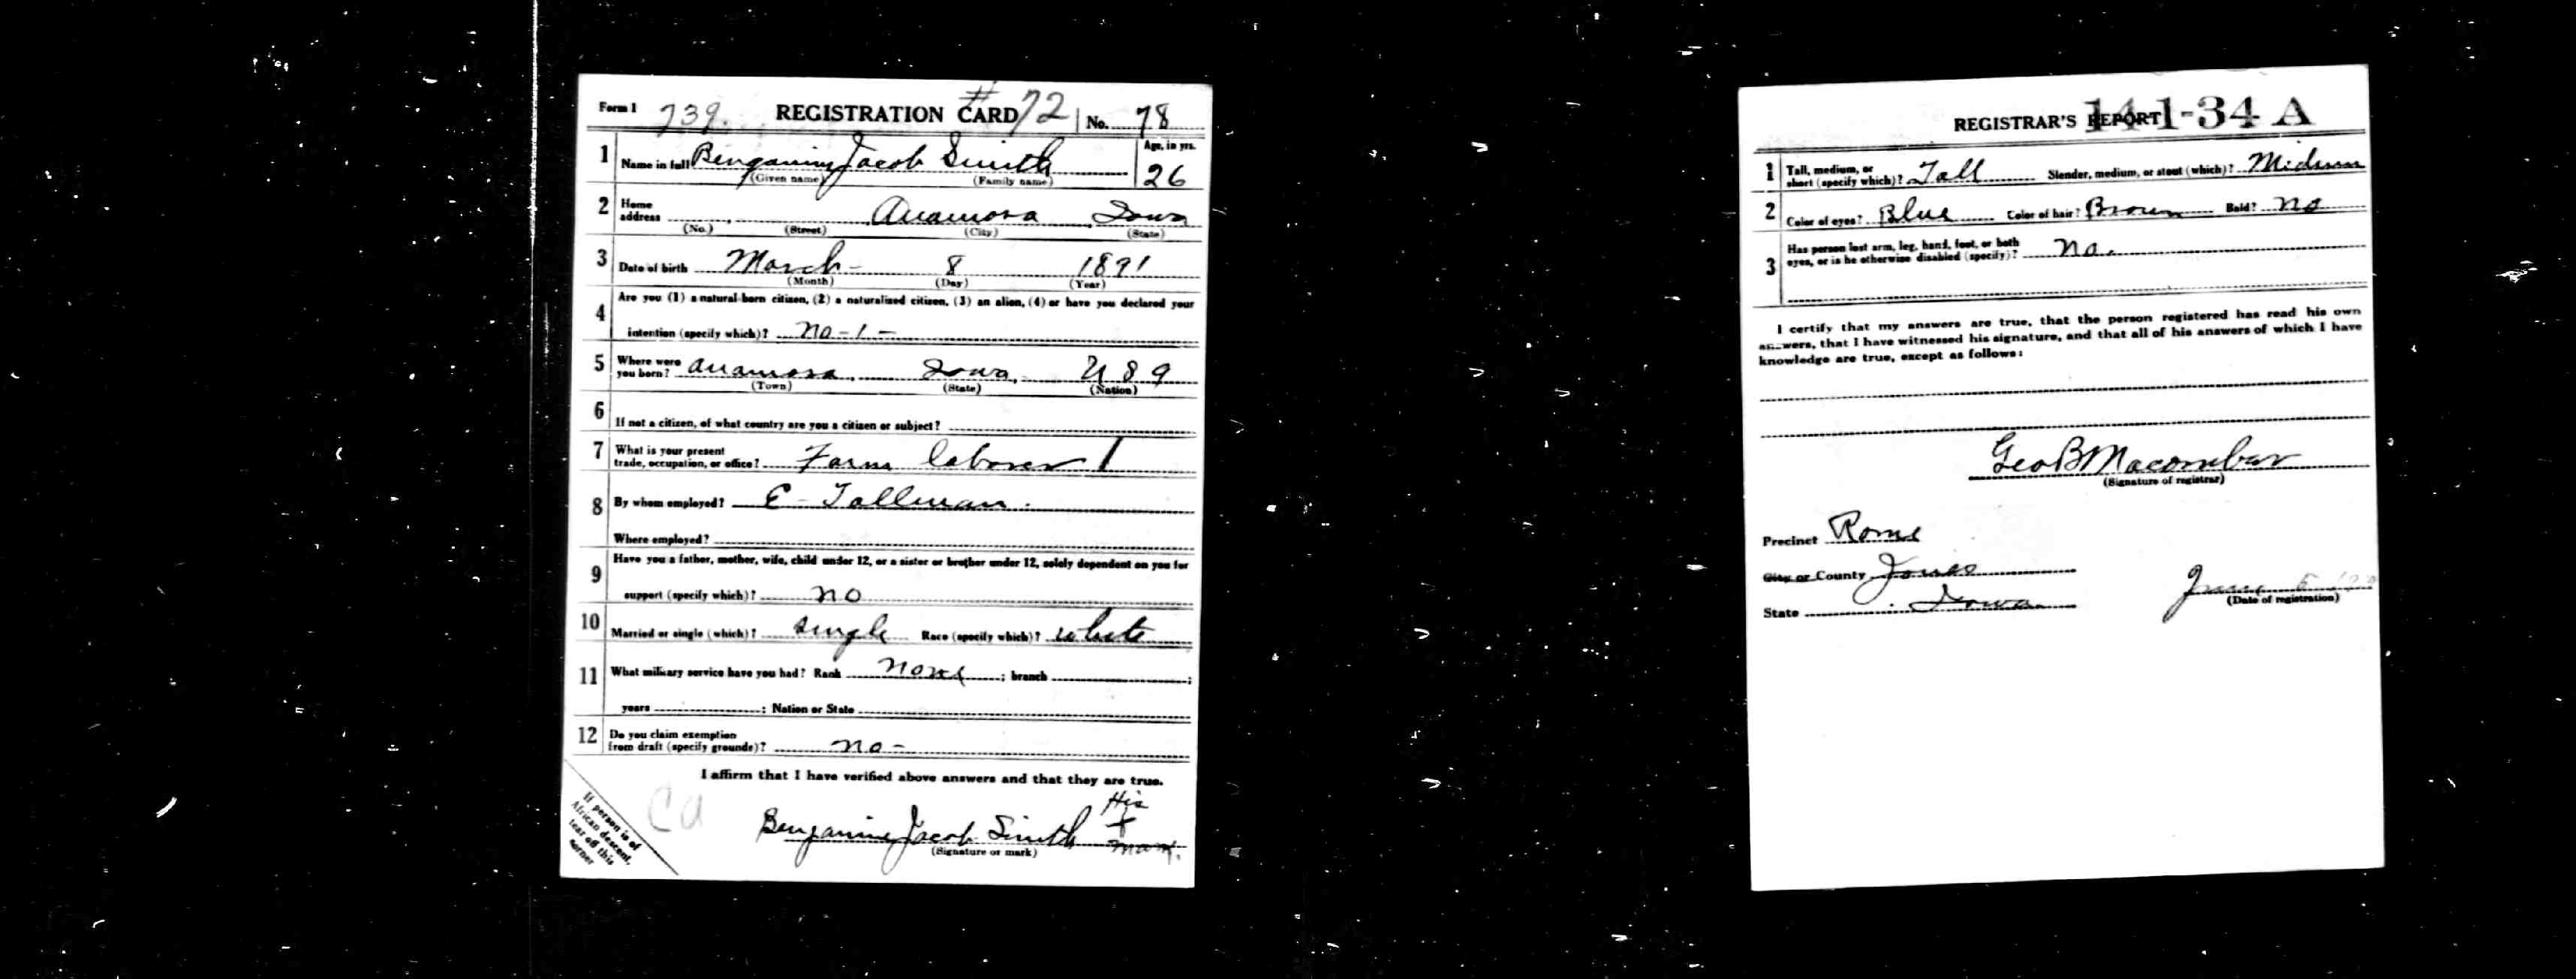 Form 1 739. REGISTRATION CARD #72 No. 78
1 Name in full Benganiny Jacob Smith Age, in yrs.
(Given name) (Family name) 26
2 Home address Anamosa Iowa
(No.) (Street) (City) (State)
3 Date of birth March - 8 1891
(Month) (Day) (Year)
4 Are you (1) a natural-born citizen, (2) a naturalized citizen, (3) an alien, (4) or have you declared your
intention (specify which)? No - 1 -
5 Where were you born? Anamosa, Iowa, U S A
(Town) (State) (Nation)
6 If not a citizen, of what country are you a citizen or subject?
7 What is your present trade, occupation, or office? Farm laborer 1
8 By whom employed? E - Tallman.
Where employed?
9 Have you a father, mother, wife, child under 12, or a sister or brother under 12, solely dependent on you for
support (specify which)? no
10 Married or single (which)? single Race (specify which)? white
11 What military service have you had? Rank None; branch ;
years ; Nation or State
12 Do you claim exemption from draft (specify grounds)? no -
I affirm that I have verified above answers and that they are true.
If person is of
African descent,
tear off this
corner
Ca
Benjamine Jacob Smith His + mark.
(Signature or mark)
REGISTRAR'S REPORT 14 1-34 A
1 Tall, medium, or short (specify which)? Tall Slender, medium, or stout (which)? Midium
2 Color of eyes? Blue Color of hair? Brown Bald? No
3 Has person lost arm, leg, hand, foot, or both eyes, or is he otherwise disabled (specify)? No.
I certify that my answers are true, that the person registered has read his own
answers, that I have witnessed his signature, and that all of his answers of which I have
knowledge are true, except as follows:
Geo B Macomber
(Signature of registrar)
Precinct Rome
City or County Jones
State Iowa
June 5
(Date of registration)